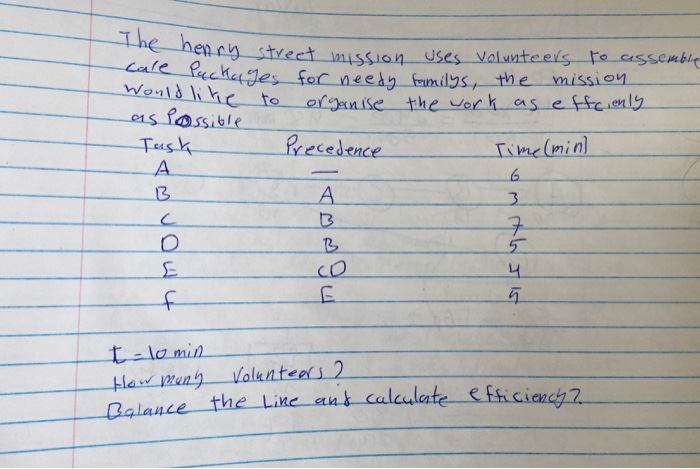 The henry street mission uses volunteers to assemble
care Packages for needy familys, the mission
would like to organise the work as effcienly
as Possible
Task Precedence Time (min)
A — 6
B A 3
C B 7
D B 5
E CD 4
f E 5
t = 10 min
How many volunteers?
Balance the Line and calculate efficiency?